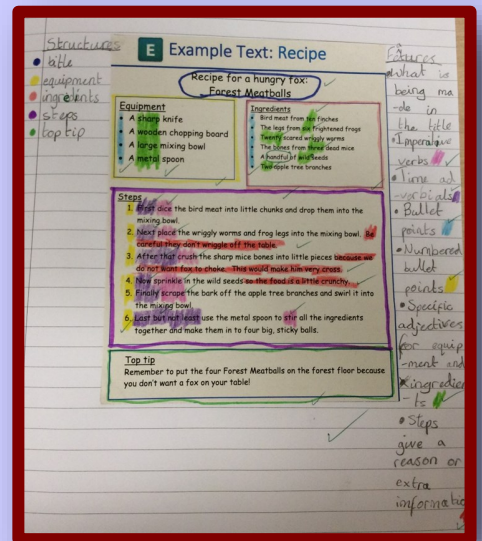 Structures
title
equipment
ingredients
steps
top tip
E Example Text: Recipe
Recipe for a hungry fox:
Forest Meatballs
Equipment
A sharp knife
A wooden chopping board
A large mixing bowl
A metal spoon
Ingredients
Bird meat from ten finches
The legs from six frightened frogs
Twenty scared wriggly worms
The bones from three dead mice
A handful of wild seeds
Two apple tree branches
Steps
1. First dice the bird meat into little chunks and drop them into the
mixing bowl.
2. Next place the wriggly worms and frog legs into the mixing bowl. Be
careful they don't wriggle off the table.
3. After that crush the sharp mice bones into little pieces because we
do not want fox to choke. This would make him very cross.
4. Now sprinkle in the wild seeds so the food is a little crunchy.
5. Finally scrape the bark off the apple tree branches and swirl it into
the mixing bowl.
6. Last but not least use the metal spoon to stir all the ingredients
together and make them in to four big, sticky balls.
Top tip
Remember to put the four Forest Meatballs on the forest floor because
you don't want a fox on your table!
what is
being ma
-de in
the title
Imperative
verbs
time ad
-verbials
Bullet
points
Numbered
bullet
points
Specific
adjectives
for equip
-ment and
Steps
give a
reason or
extra